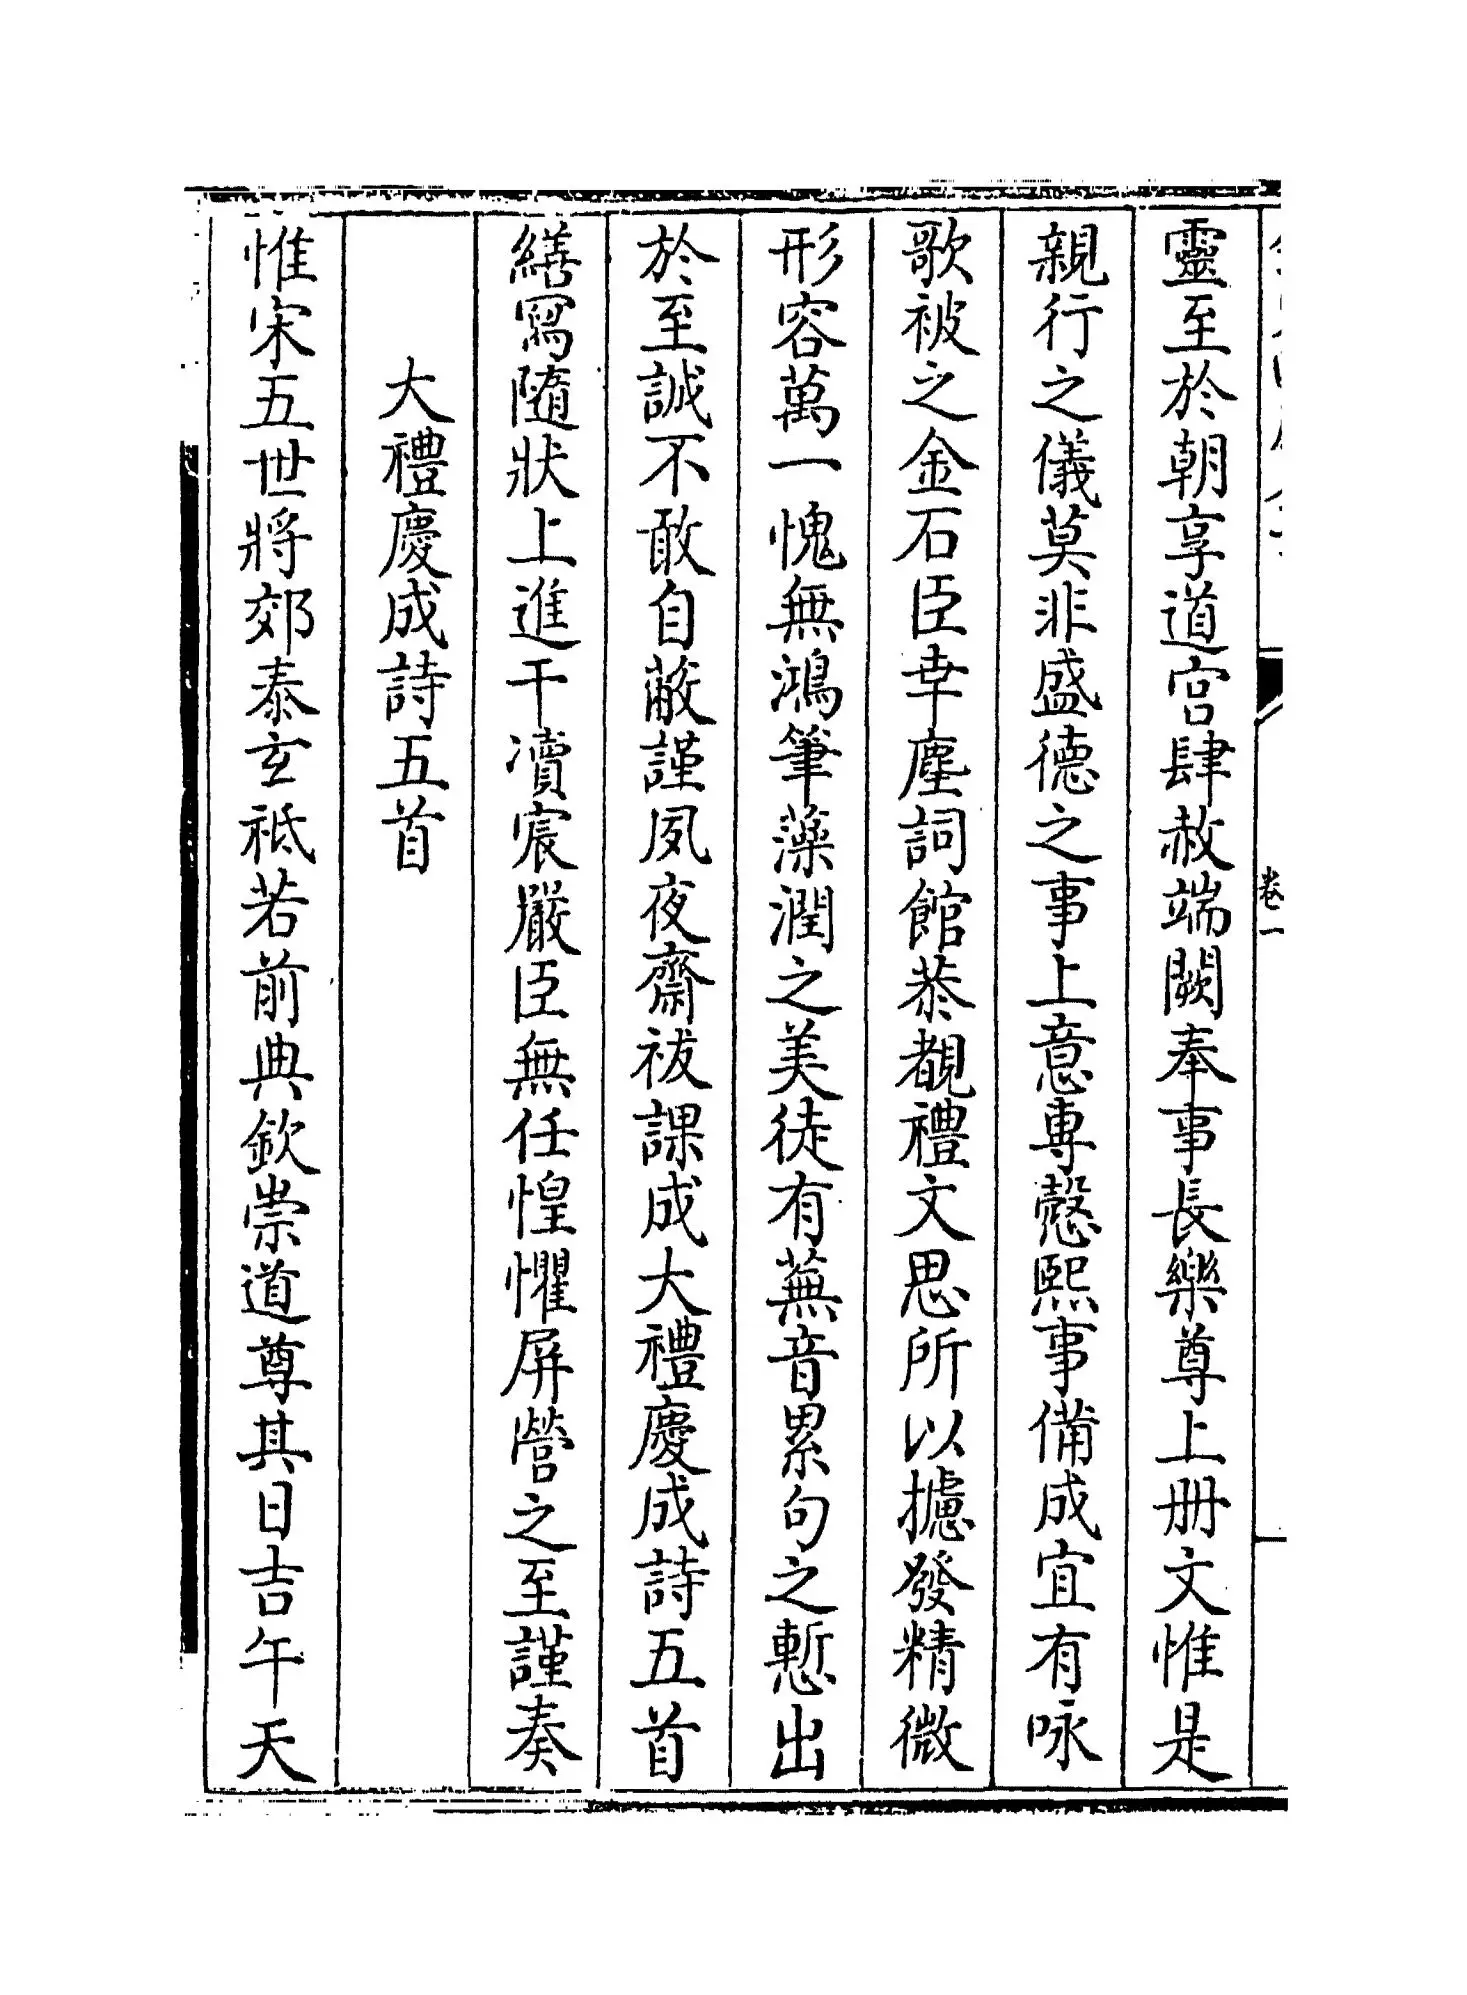 靈至於朝享道宫肆赦端闕奉事長樂尊上册文惟是
親行之儀莫非盛德之事上意專慤熙事備成宜有咏
歌被之金石臣幸塵詞館恭覩禮文思所以攄發精微
形容萬一愧無鴻筆藻潤之美徒有蕪音累句之慙出
於至誠不敢自蔽謹夙夜齋祓課成大禮慶成詩五首
繕寫隨狀上進干瀆宸嚴臣無任惶懼屏營之至謹奏
大禮慶成詩五首
惟宋五世將郊泰玄祗若前典欽崇道尊其日吉午天
卷一